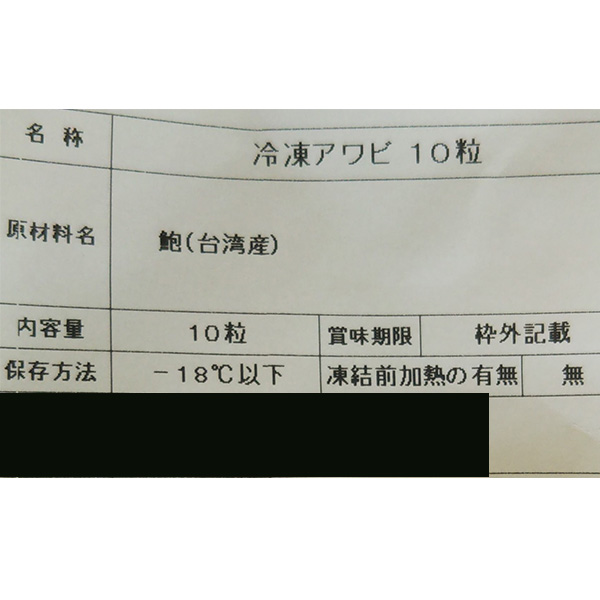 名称 冷凍アワビ 10粒
原材料名 鮑(台湾産)
内容量 10粒 賞味期限 枠外記載
保存方法 -18℃以下 凍結前加熱の有無 無